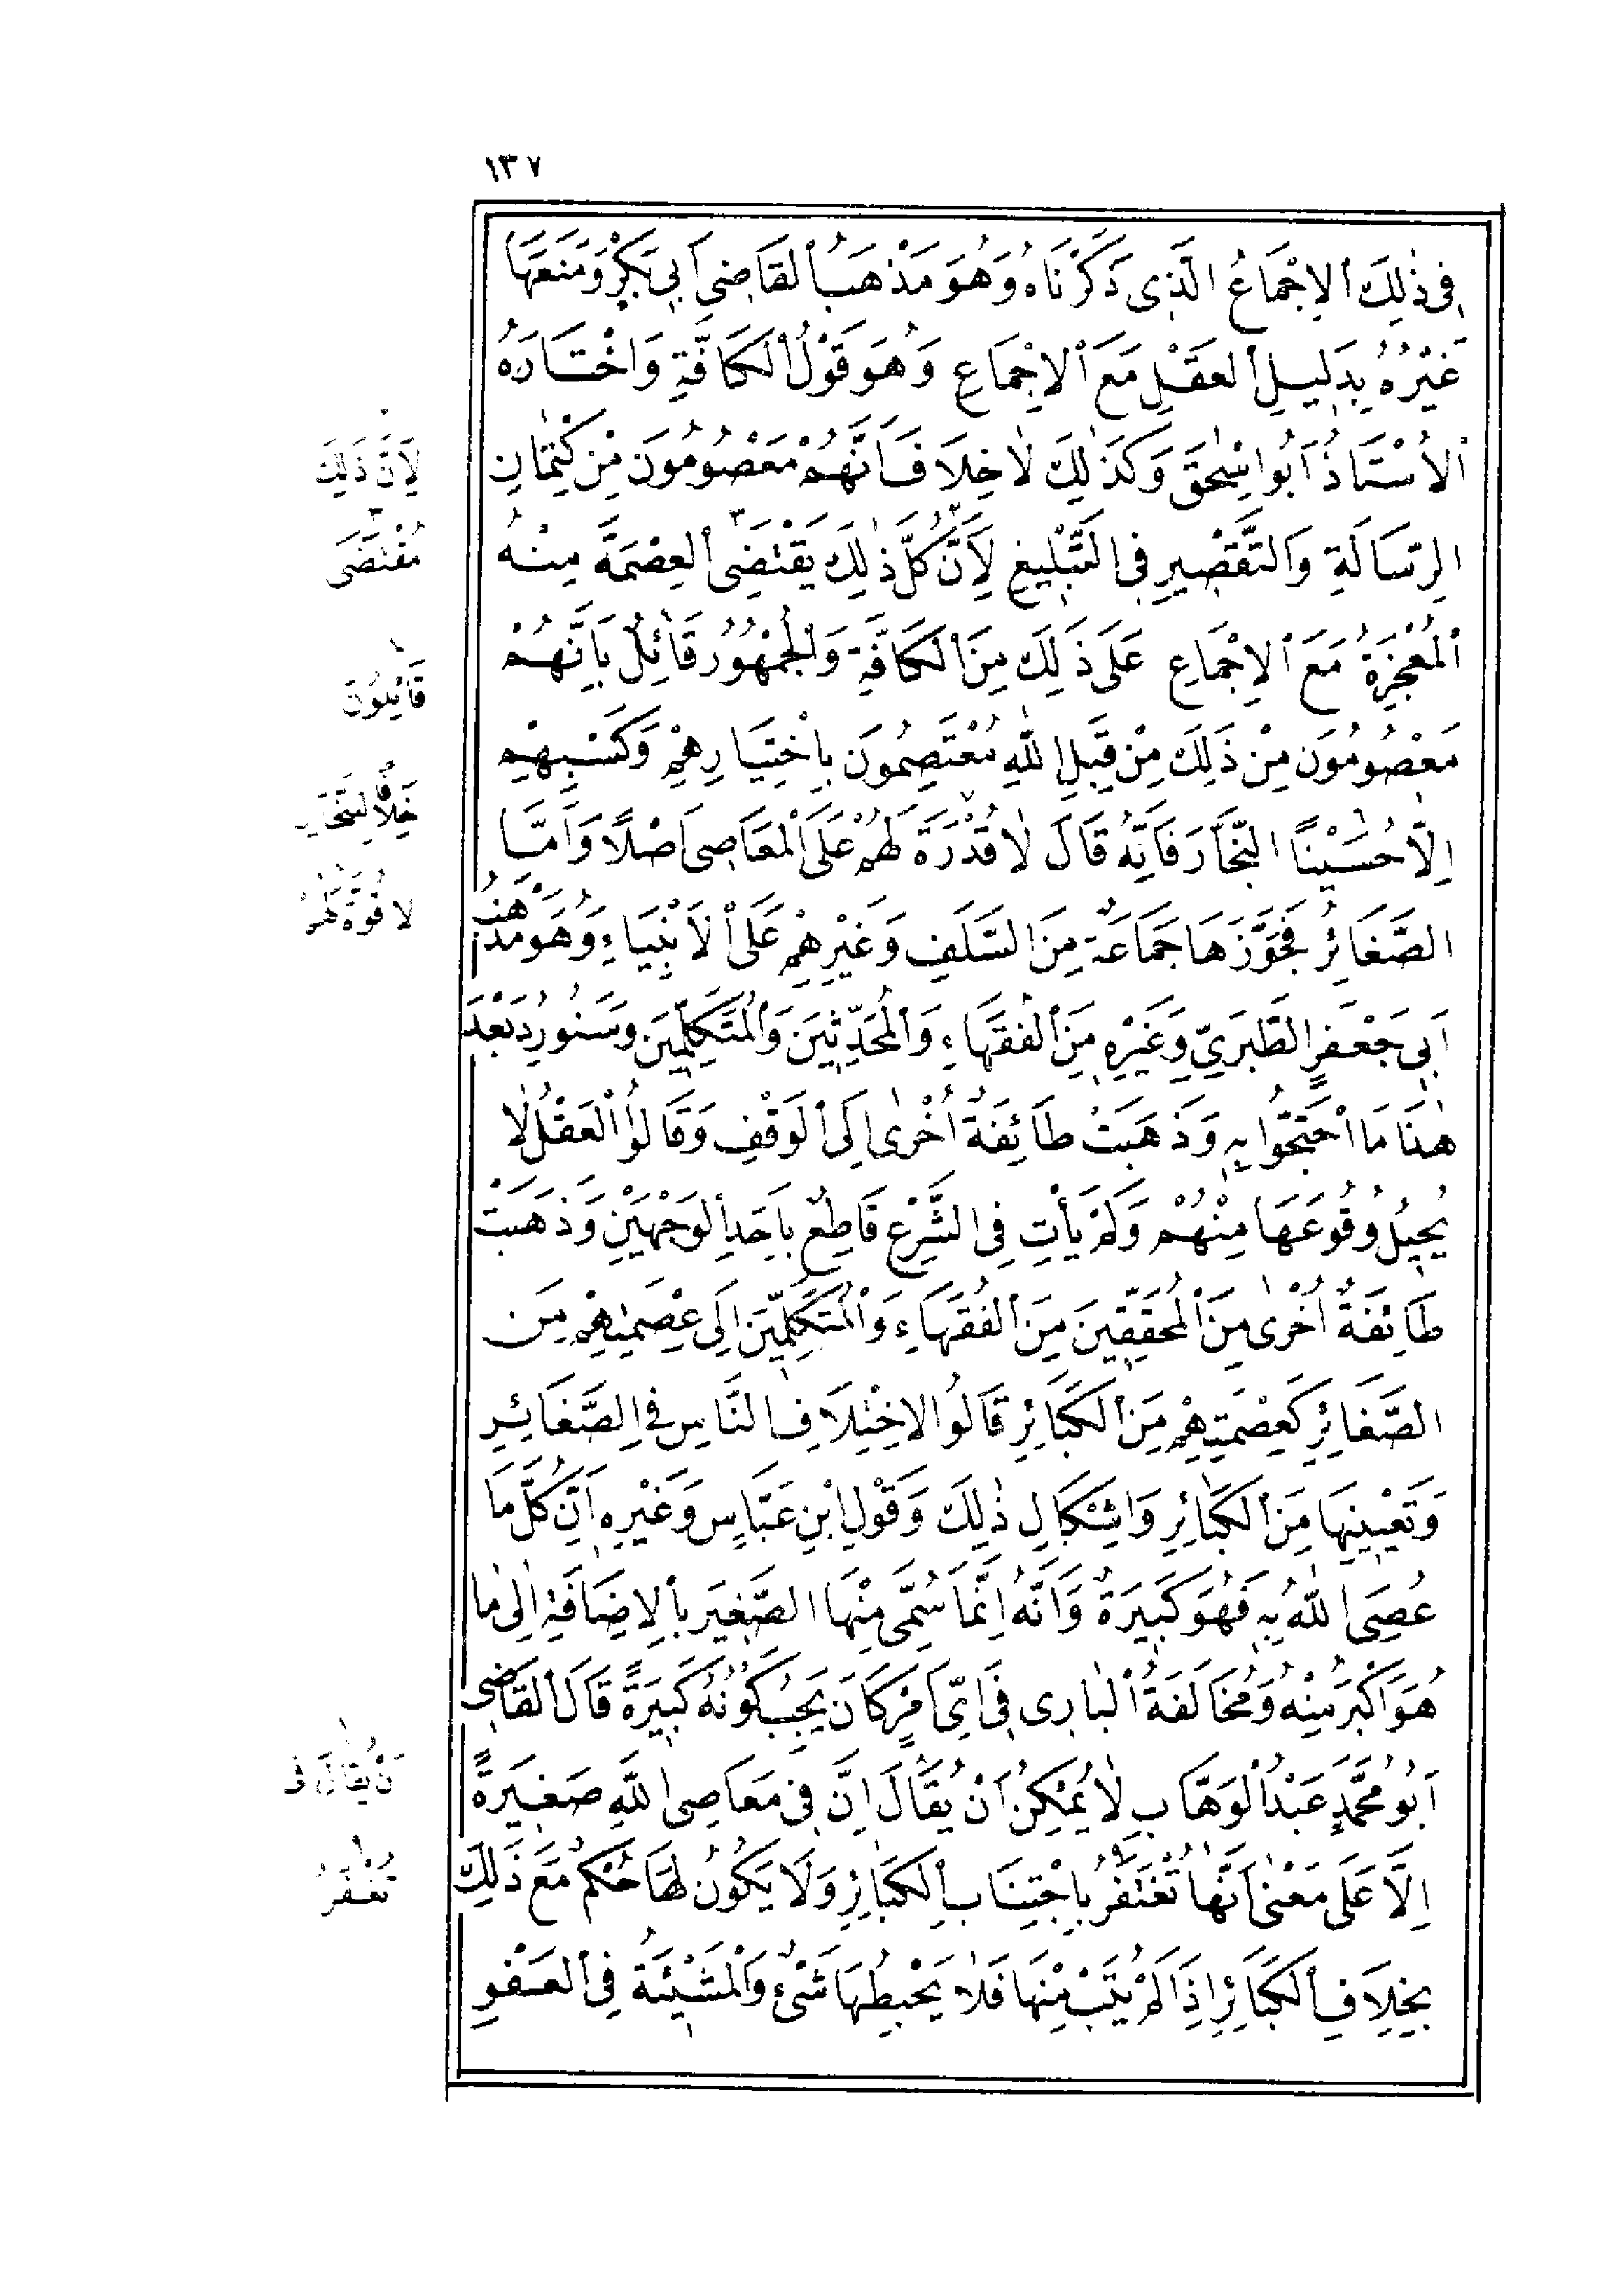 ١٣٧
فِى ذٰلِكَ الْاِجْمَاعُ الَّذِى ذَكَرْنَاهُ وَهُوَ مَذْهَبُ الْقَاضِى اَبِى بَكْرٍ وَمَنَعَهَا
غَيْرُهُ بِدَلِيلِ الْعَقْلِ مَعَ الْاِجْمَاعِ وَهُوَ قَوْلُ الْكَافَّةِ وَاخْتَارَهُ
الْاُسْتَاذُ اَبُو اِسْحٰقَ وَكَذٰلِكَ لَا خِلَافَ اَنَّهُمْ مَعْصُومُونَ مِنْ كِتْمَانِ
الرِّسَالَةِ وَالتَّقْصِيرِ فِى التَّبْلِيغِ لِاَنَّ كُلَّ ذٰلِكَ يَقْتَضِى الْعِصْمَةَ مِنْهُ
الْمُعْجِزَةُ مَعَ الْاِجْمَاعِ عَلَى ذَلِكَ مِنَ الْكَافَّةِ وَالْجُمْهُورُ قَائِلٌ بِاَنَّهُمْ
مَعْصُومُونَ مِنْ ذَلِكَ مِنْ قِبَلِ اللّٰهِ مُعْتَصِمُونَ بِاخْتِيَارِهِمْ وَكَسْبِهِمْ
اِلَّا حُسَيْنًا النَّجَّارَ فَاِنَّهُ قَالَ لَا قُدْرَةَ لَهُمْ عَلَى الْمَعَاصِى اَصْلًا وَاَمَّا
الصَّغَائِرُ فَجَوَّزَهَا جَمَاعَةٌ مِنَ السَّلَفِ وَغَيْرِهِمْ عَلَى الْاَنْبِيَاءِ وَهُوَ مَذْهَبُ
اَبِى جَعْفَرٍ الطَّبَرِىِّ وَغَيْرِهِ مِنَ الْفُقَهَاءِ وَالْمُحَدِّثِينَ وَالْمُتَكَلِّمِينَ وَسَنُورِدُ بَعْدَ
هٰذَا مَا احْتَجُّوا بِهِ وَذَهَبَتْ طَائِفَةٌ اُخْرٰى اِلَى الْوَقْفِ وَقَالُوا الْعَقْلُ لَا
يُحِيلُ وُقُوعَهَا مِنْهُمْ وَلَمْ يَأْتِ فِى الشَّرْعِ قَاطِعٌ بِاَحَدِ الْوَجْهَيْنِ وَذَهَبَتْ
طَائِفَةٌ اُخْرٰى مِنَ الْمُحَقِّقِينَ مِنَ الْفُقَهَاءِ وَالْمُتَكَلِّمِينَ اِلَى عِصْمَتِهِمْ مِنَ
الصَّغَائِرِ كَعِصْمَتِهِمْ مِنَ الْكَبَائِرِ قَالُوا لِاخْتِلَافِ النَّاسِ فِى الصَّغَائِرِ
وَتَعْيِينِهَا مِنَ الْكَبَائِرِ وَاِشْكَالِ ذٰلِكَ وَقَوْلِ ابْنِ عَبَّاسٍ وَغَيْرِهِ اَنَّ كُلَّ مَا
عُصِىَ اللّٰهُ بِهِ فَهُوَ كَبِيرَةٌ وَاَنَّهُ اِنَّمَا سُمِّىَ مِنْهَا الصَّغِيرَ بِالْاِضَافَةِ اِلٰى مَا
هُوَ اَكْبَرُ مِنْهُ وَمُخَالَفَةُ الْبَارِى فِى اَىِّ اَمْرٍ كَانَ يَجِبُ كَوْنُهُ كَبِيرَةً قَالَ الْقَاضِى
اَبُو مُحَمَّدٍ عَبْدُ الْوَهَّابِ لَا يُمْكِنُ اَنْ يُقَالَ اِنَّ فِى مَعَاصِى اللّٰهِ صَغِيرَةً
اِلَّا عَلَى مَعْنٰى اَنَّهَا تُغْتَفَرُ بِاجْتِنَابِ الْكَبَائِرِ وَلَا يَكُونُ لَهَا حُكْمٌ مَعَ ذَلِكَ
بِخِلَافِ الْكَبَائِرِ اِذَا لَمْ يُتَبْ مِنْهَا فَلَا يُحْبِطُهَا شَىْءٌ وَالْمَشِيْئَةُ فِى الْعَفْوِ
لِاَنَّ ذَلِكَ
مُقْتَضَى
قَائِلُونَ
خِلَافًا لِلنَّجَّارِ
لَا قُوَّةَ لَهُمْ
اَنْ يُقَالَ فِى
تُغْفَرُ